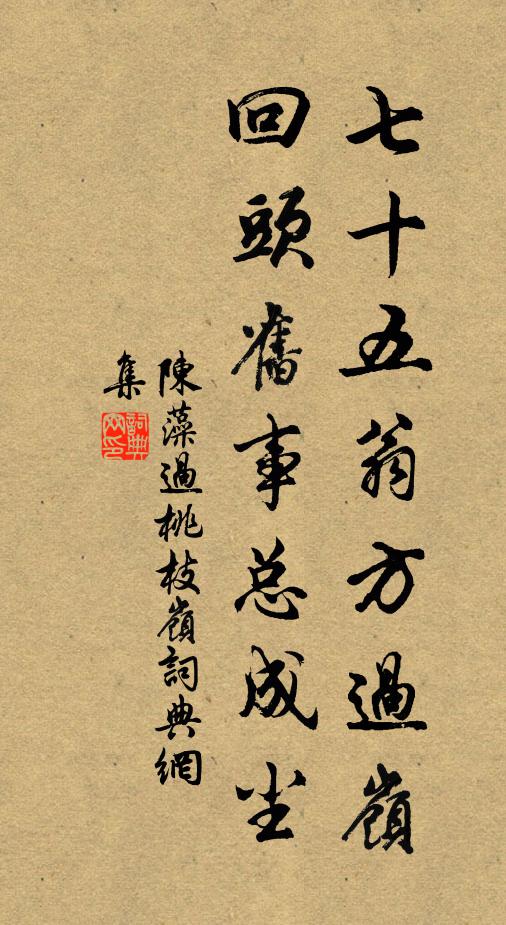 七十五翁方過嶺
回頭舊事总成尘
陳藻過桃枝嶺詞典網
集
詞典网印